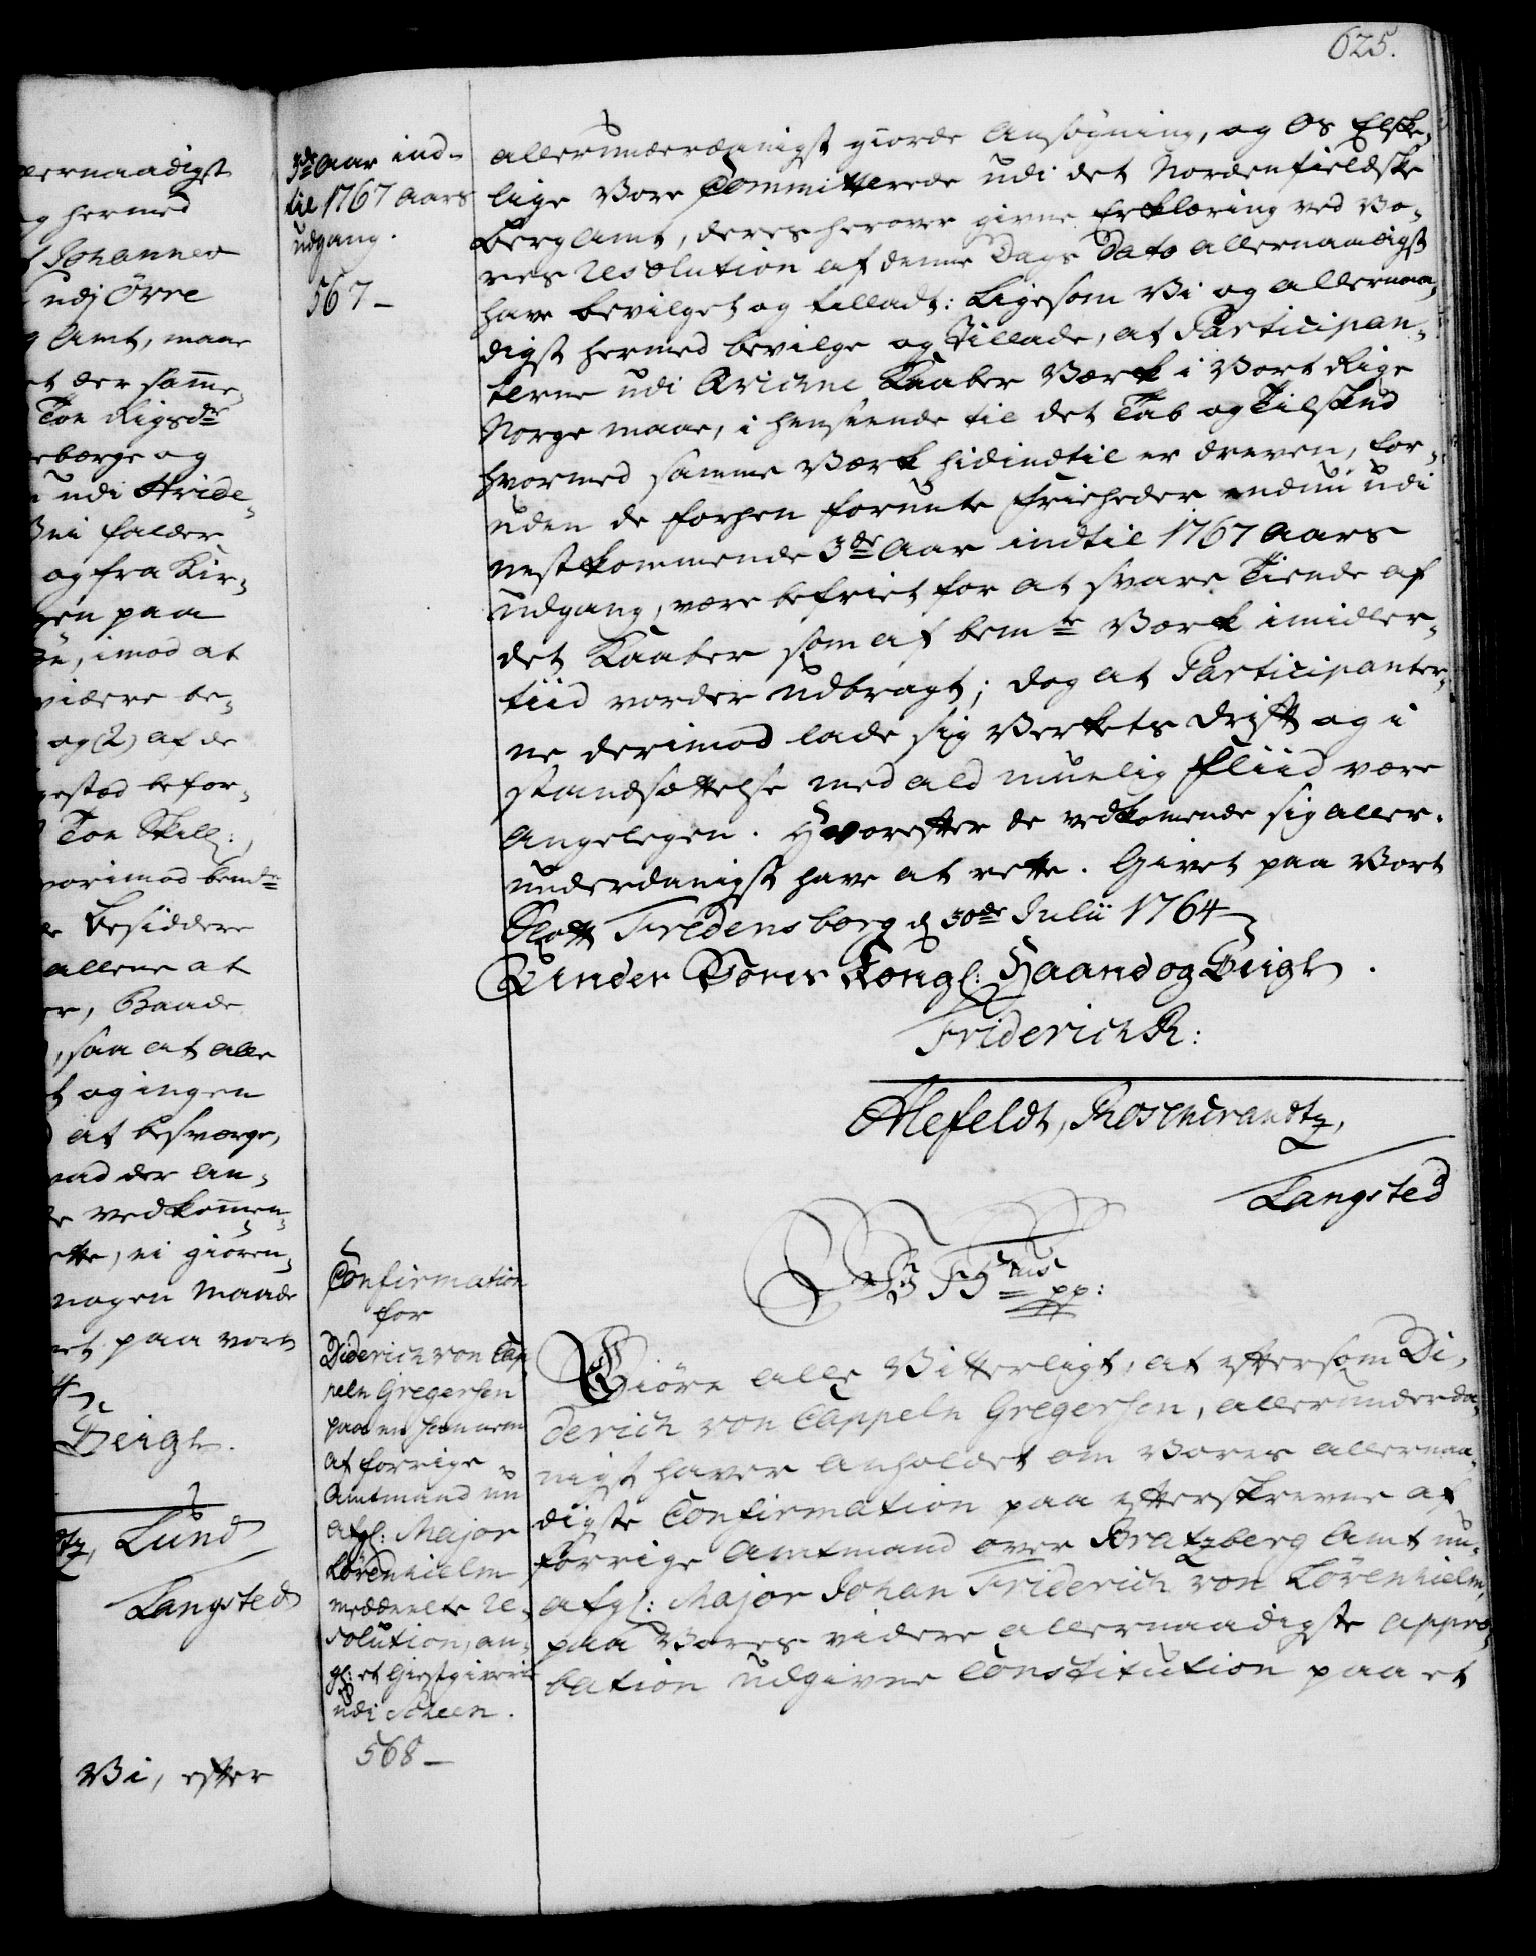 625.
ternaadigst
og hermed
Johannes
udj Örre
Amt, maae
et der samme
Toe Rigsdr
eberge og
udi Hvide
falder
og fra Kir-
gen paa
imod at
videre be-
og (2) af de
gestad befor-
Toe Skill:
vorimod bemte
Besiddere
allene at
er, Baade
, saa at alle
t og ingen
at besverge,
mad der an-
vedkommen-
ette, vi giøren-
nogen Maade
et paa vort
Zeigl.
tz, Lund
Langsted
Vi, efter
3de Aar ind-
til 1767 Aars
udgang.
567-
allerunderdanigst giorde Ansøgning, og Os Elske-
lige Vore Committerede udi det Nordenfieldske
BergAmt, deres herover givne Erklæring ved Vo-
res Resolution af denne Dags Dato allernaadigst
have bevilget og tilladt: Ligesom Vi og allernaa-
digst hermed bevilge og Tillade, at Participan-
terne udi Qvickne Kaaber Værk i Vort Rige
Norge maae, i henseende til det Tab og Tilskud
hvormed samme Værk hidindtil er dreven, for-
uden de forhen forunte Friheder endnu udi
nestkommende 3de Aar indtil 1767 Aars
udgang, være befriet for at svare Tiende af
det Kaaber som af bemte Værk imidler-
tiid vorder udbragt; dog at Participanter-
ne derimod lade sig Verkets Drift og i
standsættelse med ald muelig Fliid være
angelegen. Hvorefter de vedkomende sig aller-
underdanigst have at rette. Givet paa Vort
Slott Fredensborg d 30de Julii 1764
Under Vores Kongl: Haand og Zeigl.
Friderich R:
Alefeldt, Rosencrandtz,
Langsted
Confirmation
for
Diderich von Cap-
peln Gregersen
paa en ham
af forrige
Amtmand nu
afgl: Major
Lövenhielm
meddeelte Re-
solution, an-
gl: et Giestgiverie
udi Scheen.
568-
V F 5tus pp:
Giöre alle Vitterligt, at eftersom Di-
derich von Cappeln Gregersen, allerunderda-
nigst haver anholdet om Vores allernaa-
digste Confirmation paa efterskrevne af
forrige Amtmand over Bratzberg Amt nu-
afgl: Major Johan Friderich von Lövenhielm,
paa Vores videre allernaadigste appro-
bation udgivne Constitution paa et